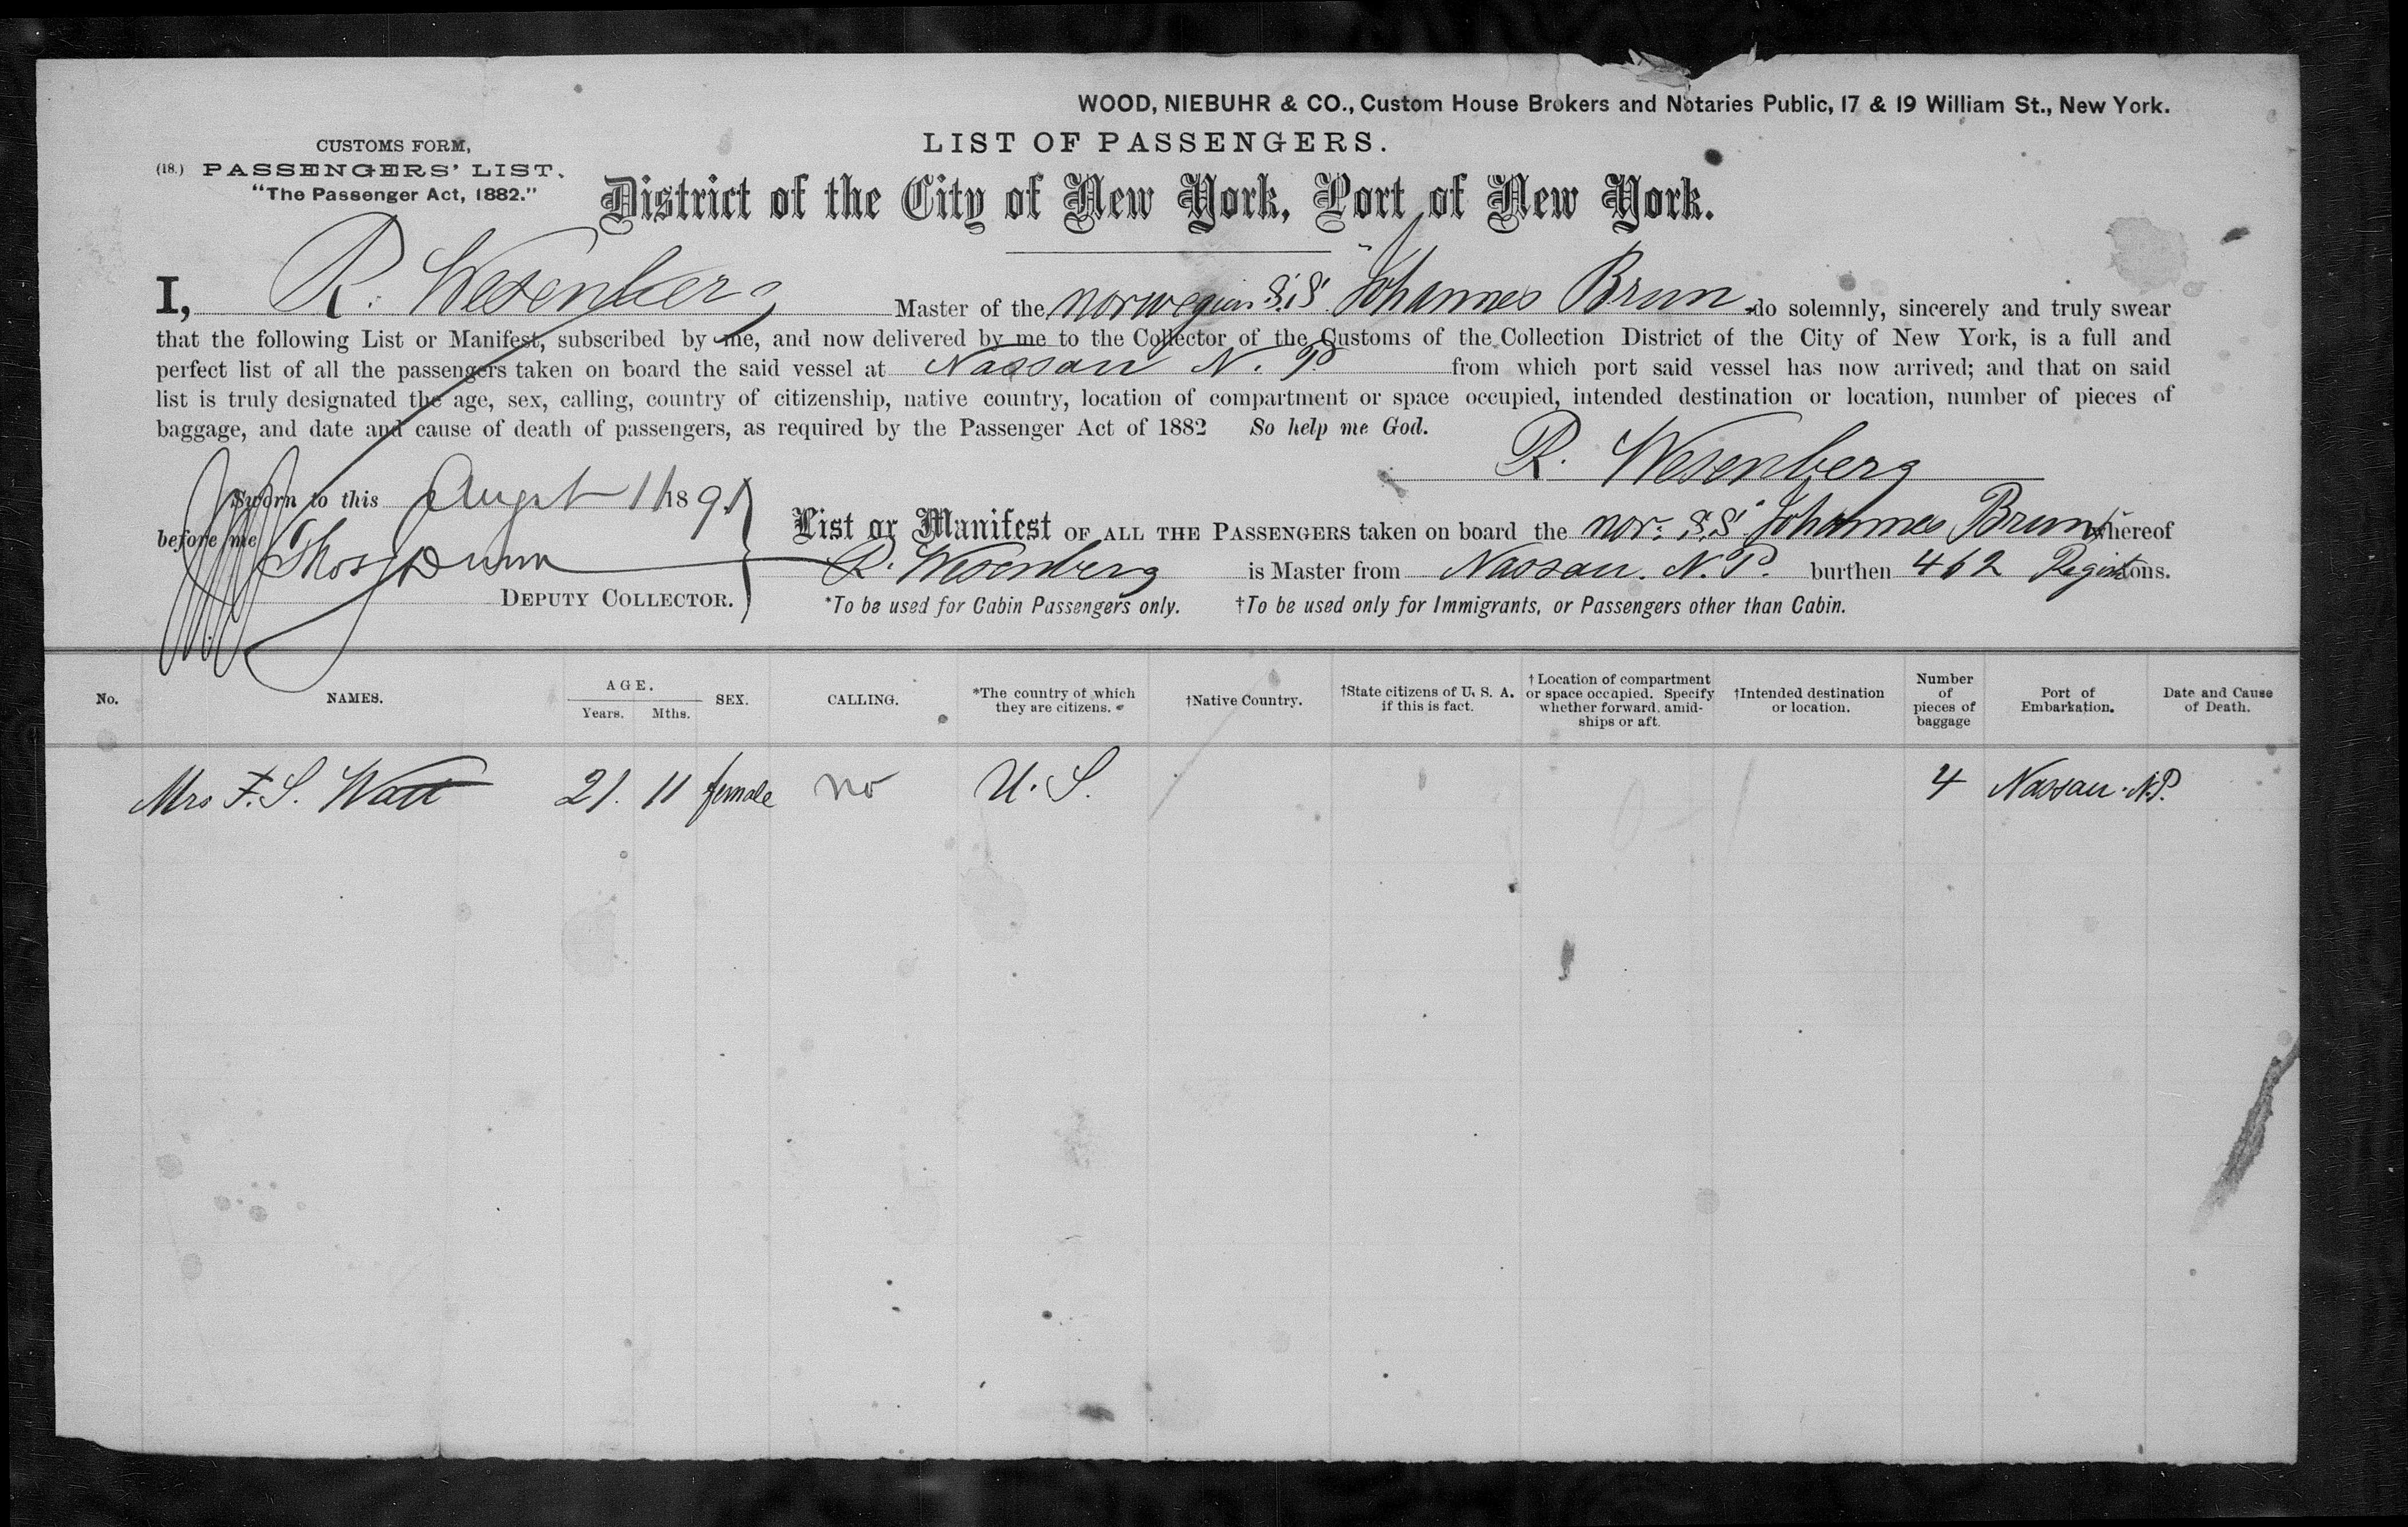 WOOD, NIEBUHR & CO., Custom House Brokers and Notaries Public, 17 & 19 William St., New York.
LIST OF PASSENGERS.
CUSTOMS FORM,
(18.) PASSENGERS' LIST.
"The Passenger Act, 1882."
District of the City of New York, Port of New York.
I, R. Wesenberg Master of the norwegian S.S. "Johannes Brun" do solemnly, sincerely and truly swear
that the following List or Manifest, subscribed by me, and now delivered by me to the Collector of the Customs of the Collection District of the City of New York, is a full and
perfect list of all the passengers taken on board the said vessel at Nassau N. P. from which port said vessel has now arrived; and that on said
list is truly designated the age, sex, calling, country of citizenship, native country, location of compartment or space occupied, intended destination or location, number of pieces of
baggage, and date and cause of death of passengers, as required by the Passenger Act of 1882 So help me God.
R. Wesenberg
Sworn to this Augst 11 1891
before me
DEPUTY COLLECTOR.
List or Manifest OF ALL THE PASSENGERS taken on board the nor. S.S. "Johannes Brun" whereof
R. Wesenberg is Master from Nassau. N.P. burthen 462 Regist tons.
*To be used for Cabin Passengers only. †To be used only for Immigrants, or Passengers other than Cabin.
No. NAMES. AGE. Years. Mths. SEX. CALLING. *The country of which they are citizens. †Native Country. †State citizens of U. S. A. if this is fact. †Location of compartment or space occupied. Specify whether forward, amidships or aft. †Intended destination or location. Number of pieces of baggage Port of Embarkation. Date and Cause of Death.
Mrs F. S. Watt 21. 11 female no U. S. 4 Nassau. N.P.